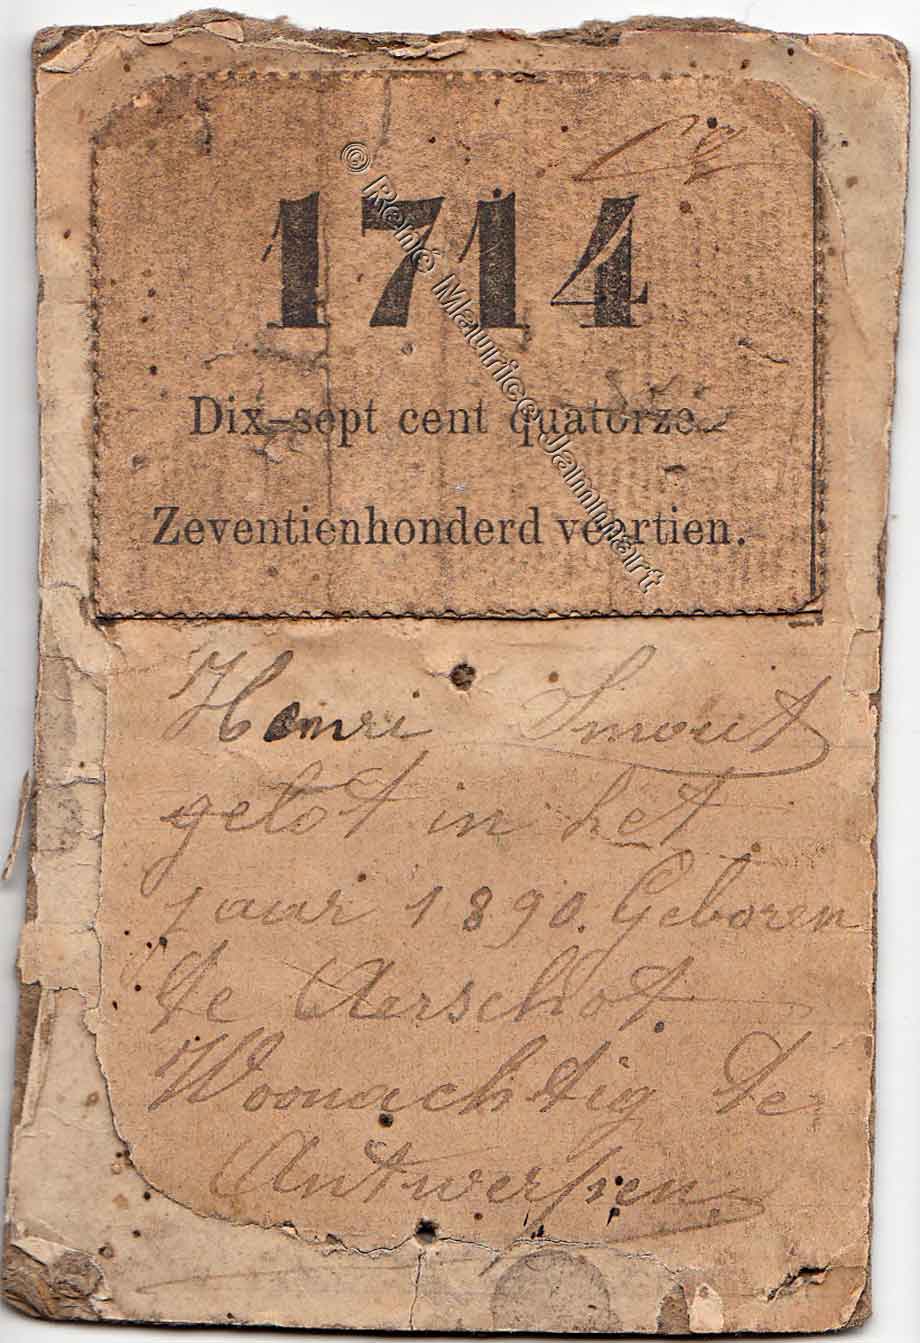 1714
Dix-sept cent quatorze.
Zeventienhonderd veertien.
© René Maurice Jammart
Henri Smout
gelot in het
jaar 1890. Geboren
te Aerschot
Woonachtig te
Antwerpen